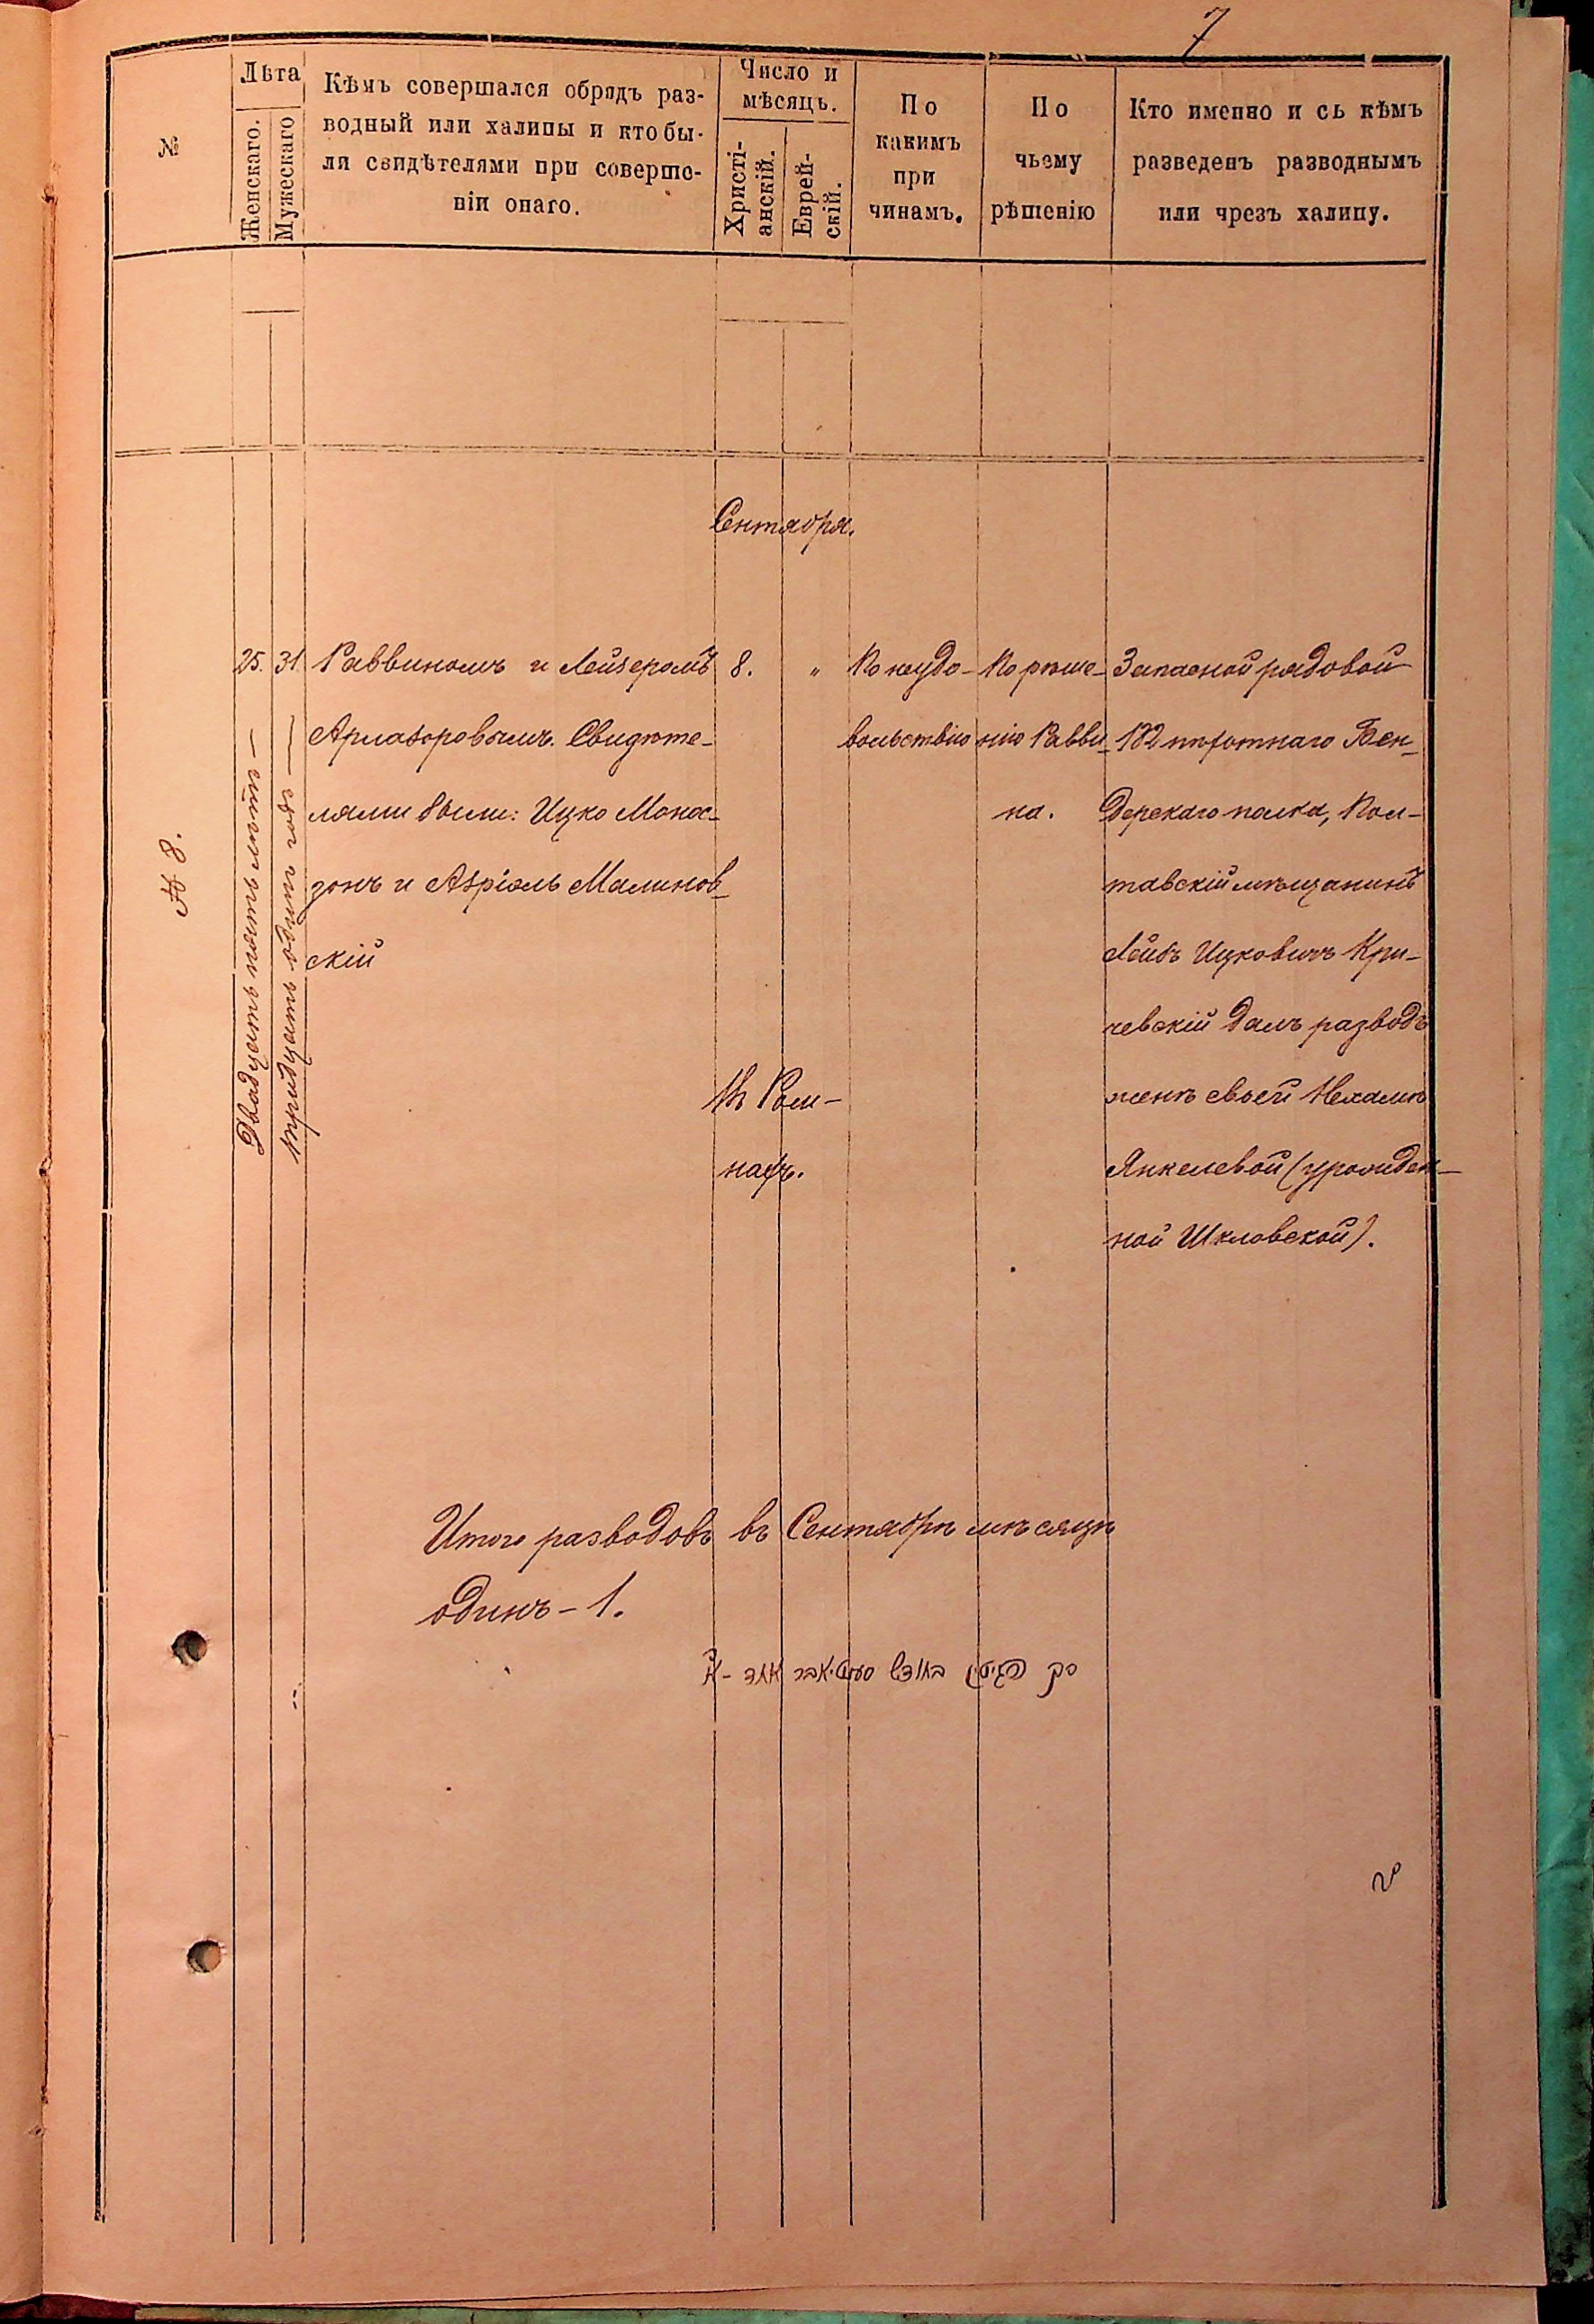 7
№
Лѣта
Женскаго.
Мужескаго
Кѣмъ совершался обрядъ раз-
водный или халицы и кто бы-
ли свидѣтелями при соверше-
ніи онаго.
Число и
мѣсяцъ.
Христі-
анскій.
Еврей-
скій.
По
какимъ
при
чинамъ.
По
чьему
рѣшенію
Кто именно и съ кѣмъ
разведенъ разводнымъ
или чрезъ халицу.
Сентября.
№ 8.
25.
Двадцать пять лѣтъ —
31
тридцать одинъ годъ —
Раввиномъ и Лейзеромъ
Арлазоровымъ. Свидѣте-
лями были: Ицко Монос-
зонъ и Азріэль Малинов-
скій
8.
Въ Ром-
нахъ.
"
По неудо-
вольствію
По рѣше-
нію Равви-
на.
Запасной рядовой
182 пѣхотнаго Бен-
дерскаго полка, Пол-
тавскій мѣщанинъ
Лейбъ Ицковичъ Кри-
чевскій далъ разводъ
женѣ своей Нехамѣ
Янкелевой (урожден-
ной Шкловской).
Итого разводовъ въ Сентябрѣ мѣсяцѣ
одинъ - 1.
סך הגיטין בחודש סענטיאבר אחד - א'